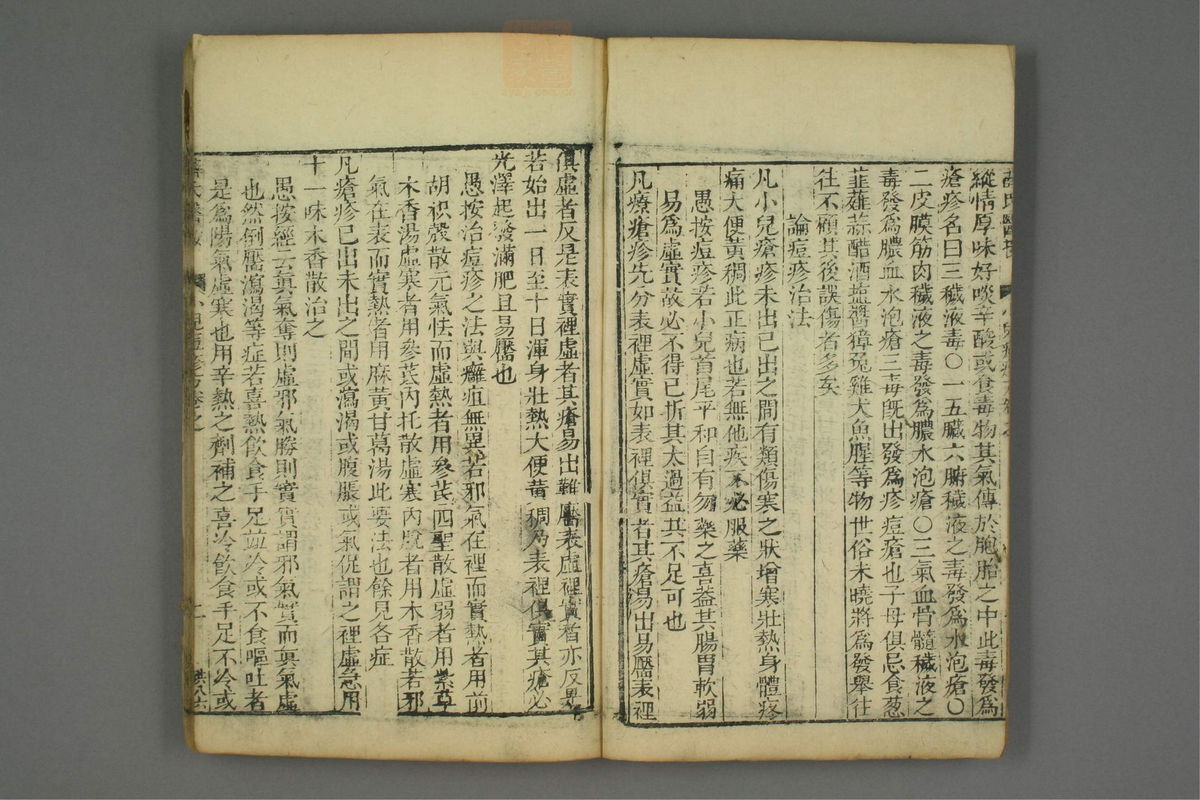 縱情厚味好啖辛酸或食毒物其氣傳於胞胎之中此毒發爲
瘡疹名曰三穢液毒〇一五臟六腑穢液之毒發爲水泡瘡〇
二皮膜筋肉穢液之毒發爲膿水泡瘡〇三氣血骨髓穢液之
毒發爲膿血水泡瘡三毒既出發爲疹痘瘡也子母俱忌食葱
韮薤蒜醋酒鹽醬獐兔雞犬魚腥等物世俗未曉將爲發舉往
往不顧其後誤傷者多矣
論痘疹治法
凡小兒瘡疹未出已出之間有類傷寒之狀增寒壯熱身體疼
痛大便黄稠此正病也若無他疾不必服藥
愚按痘疹若小兒首尾平和自有勿藥之喜蓋其腸胃軟弱
易爲虛實故必不得已折其太過益其不足可也
凡療瘡疹先分表裡虛實如表裡俱實者其瘡湯出易靨表裡
俱虛者反是表實裡虛者其瘡易出難靨表虛裡實者亦反是
若始出一日至十日渾身壯熱大便黄稠乃表裡俱實其瘡必
光澤起發滿肥且易靨也
愚按治痘疹之法與癰疽無異若邪氣在裡而實熱者用前
胡枳殼散元氣怯而虛熱者用參芪四聖散虛弱者用紫草
木香湯虛寒者用參芪內托散虛寒內脫者用木香散若邪
氣在表而實熱者用麻黃甘葛湯此要法也餘見各症
凡瘡疹已出未出之間或瀉渴或腹脹或氣促謂之裡虛急用
十一味木香散治之
愚按經云眞氣奪則虛邪氣勝則實實謂邪氣實而眞氣虛
也然倒靨瀉渴等症若喜熱飲食手足並冷或不食嘔吐者
是爲陽氣虛寒也用辛熱之劑補之喜冷飲食手足不冷或